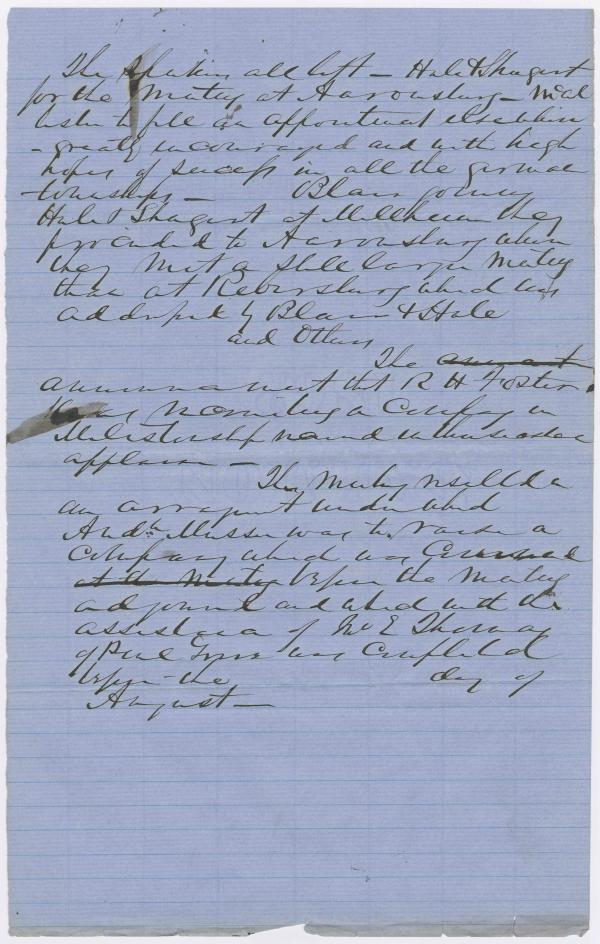 The Speakers all left – Hale & Shugert
for the Meeting at Aaronsburg –
to fill an appointment elsewhere
– greatly encouraged and with high
hopes of success in all the german
townships – Blair joining
Hale & Shugert at Millheim they
proceeded to Aaronsburg when
they met a still larger Meeting
than at Rebersburg which was
addressed by Blair & Hale
and Others
The
announcement that R H Foster
was recruiting a Company in
received
applause –
The Meeting resulted in
an arrangement under which
And. Musser was to raise a
Company which was
at the Meeting before the Meeting
adjourned and which with the
assistance of Wm E Thomas
of Penn was completed
before the day of
August –